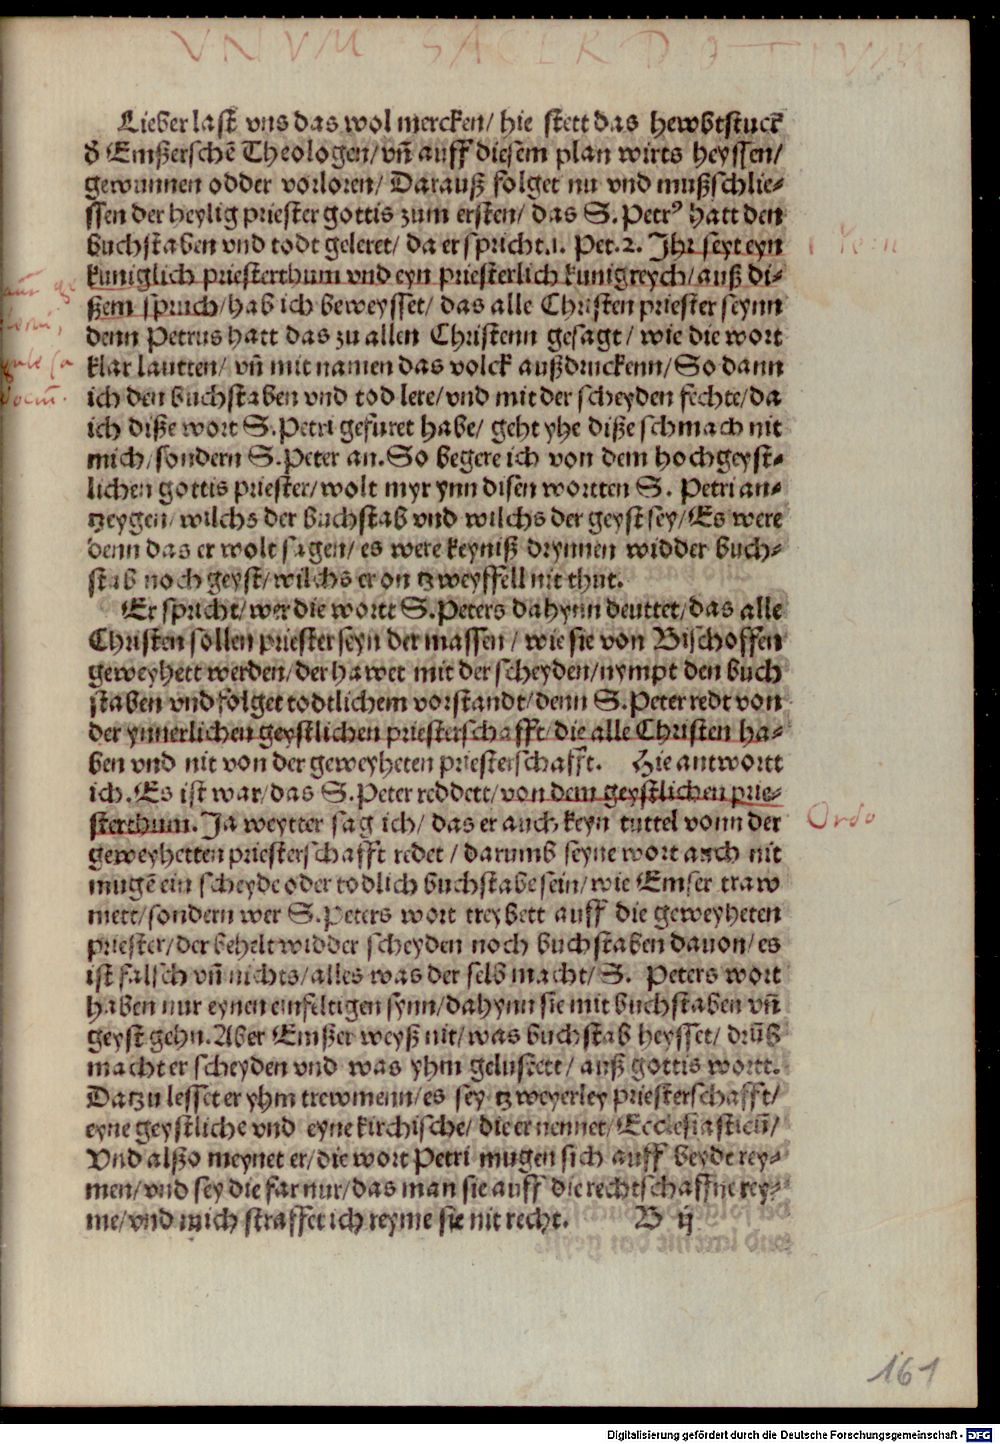 VNVM SACERDOTIVM
Lieber last vns das wol mercken/ hie stett das hewbtstuck
d̕ Emßerschē Theologen/ vñ auff diesem plan wirts heyssen/
gewunnen odder vorloren/ Darauß folget nu vnd mußschlie⸗
ssen der heylig priester gottis zum ersten/ das S. Petrꝰ hatt den
buchstaben vnd todt geleret/ da er spricht.1. Pet.2. Jhr seyt eyn
kuniglich priesterthum vnd eyn priesterlich kunigreych/ auß di⸗
ßem spruch/ hab ich beweysset/ das alle Christen priester seynn
denn Petrus hatt das zu allen Christenn gesagt/ wie die wort
klar lautten/ vñ mit namen das volck außdruckenn/ So dann
ich den buchstaben vnd tod lere/ vnd mit der scheyden fechte/ da
ich diße wort S. Petri gefuret habe/ geht yhe diße schmach nit
mich/ sondern S. Peter an. So begere ich von dem hochgeyst⸗
lichen gottis priester/ wolt myr ynn disen wortten S. Petri an⸗
tzeygen/ wilchs der buchstab vnd wilchs der geyst sey/ Es were
denn das er wolt sagen/ es were keyniß drynnen widder buch⸗
stab noch geyst/ wilchs er on tzweyffell nit thut.
Er spricht/ wer die wortt S. Peters dahynn deuttet/ das alle
Christen sollen priester seyn der massen/ wie sie von Bischoffen
geweyhett werden/ der hawet mit der scheyden/ nympt den buch
staben vnd folget todtlichem vorstandt/ denn S. Peter redt von
der ynnerlichen geystlichen priesterschafft/ die alle Christen ha⸗
ben vnd nit von der geweyheten priesterschafft. Hie antwortt
ich. Es ist war/ das S. Peter reddett/ von dem geystlichen prie⸗
sterthum. Ja weytter sag ich/ das er auch keyn tuttel vonn der
Ordo
geweyhetten priesterschafft redet/ darumb seyne wort auch nit
mugē ein scheyde oder todlich buchstabe sein/ wie Emser traw
mett/ sondern wer S. Peters wort treybett auff die geweyheten
priester/ der behelt widder scheyden noch buchstaben dauon/ es
ist falsch vñ nichts/ alles was der selb macht/ S. Peters wort
haben nur eynen einfeltigen synn/ dahynn sie mit buchstaben vñ
geyst gehn. Aber Emßer weyß nit/ was buchstab heysset/ drūb
macht er scheyden vnd was yhm gelustett/ auß gottis wortt.
Datzu lesset er yhm trewmenn/ es sey tzweyerley priesterschafft/
eyne geystliche vnd eyne kirchische/ die er nennet/ Ecclesiasticū/
Vnd alßo meynet er/ die wort Petri mugen sich auff beyde rey⸗
men/ vnd sey die far nur/ das man sie auff die rechtschaffne rey⸗
me/ vnd mich straffet ich reyme sie nit recht. B ij
161
Digitalisierung gefördert durch die Deutsche Forschungsgemeinschaft - DFG